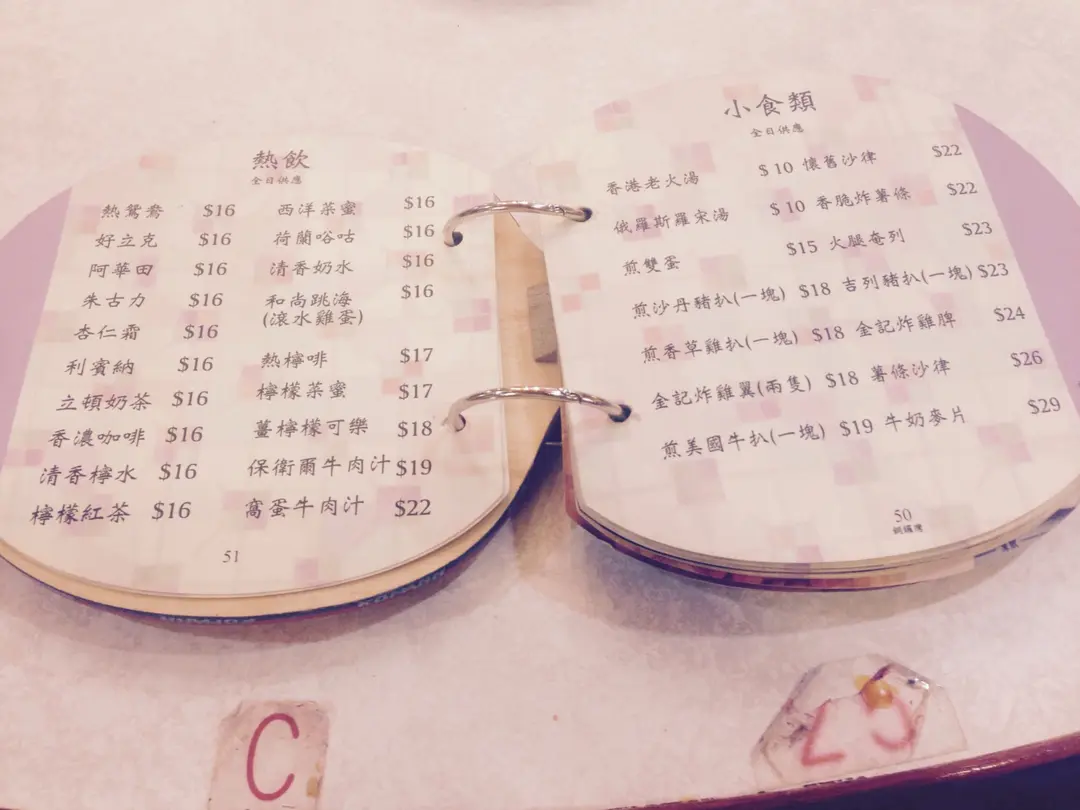 熱飲
全日供應
熱鴛鴦 $16 西洋菜蜜 $16
好立克 $16 荷蘭唂咕 $16
阿華田 $16 清香奶水 $16
朱古力 $16 和尚跳海 $16
(滾水雞蛋)
杏仁霜 $16
利賓納 $16 熱檸啡 $17
立頓奶茶 $16 檸檬菜蜜 $17
香濃咖啡 $16 薑檸檬可樂 $18
清香檸水 $16 保衛爾牛肉汁 $19
檸檬紅茶 $16 窩蛋牛肉汁 $22
51
小食類
全日供應
香港老火湯 $10 懷舊沙律 $22
俄羅斯羅宋湯 $10 香脆炸薯條 $22
煎雙蛋 $15 火腿奄列 $23
煎沙丹豬扒(一塊) $18 吉列豬扒(一塊) $23
煎香草雞扒(一塊) $18 金記炸雞脾 $24
金記炸雞翼(兩隻) $18 薯條沙律 $26
煎美國牛扒(一塊) $19 牛奶麥片 $29
50
銅鑼灣
C
25